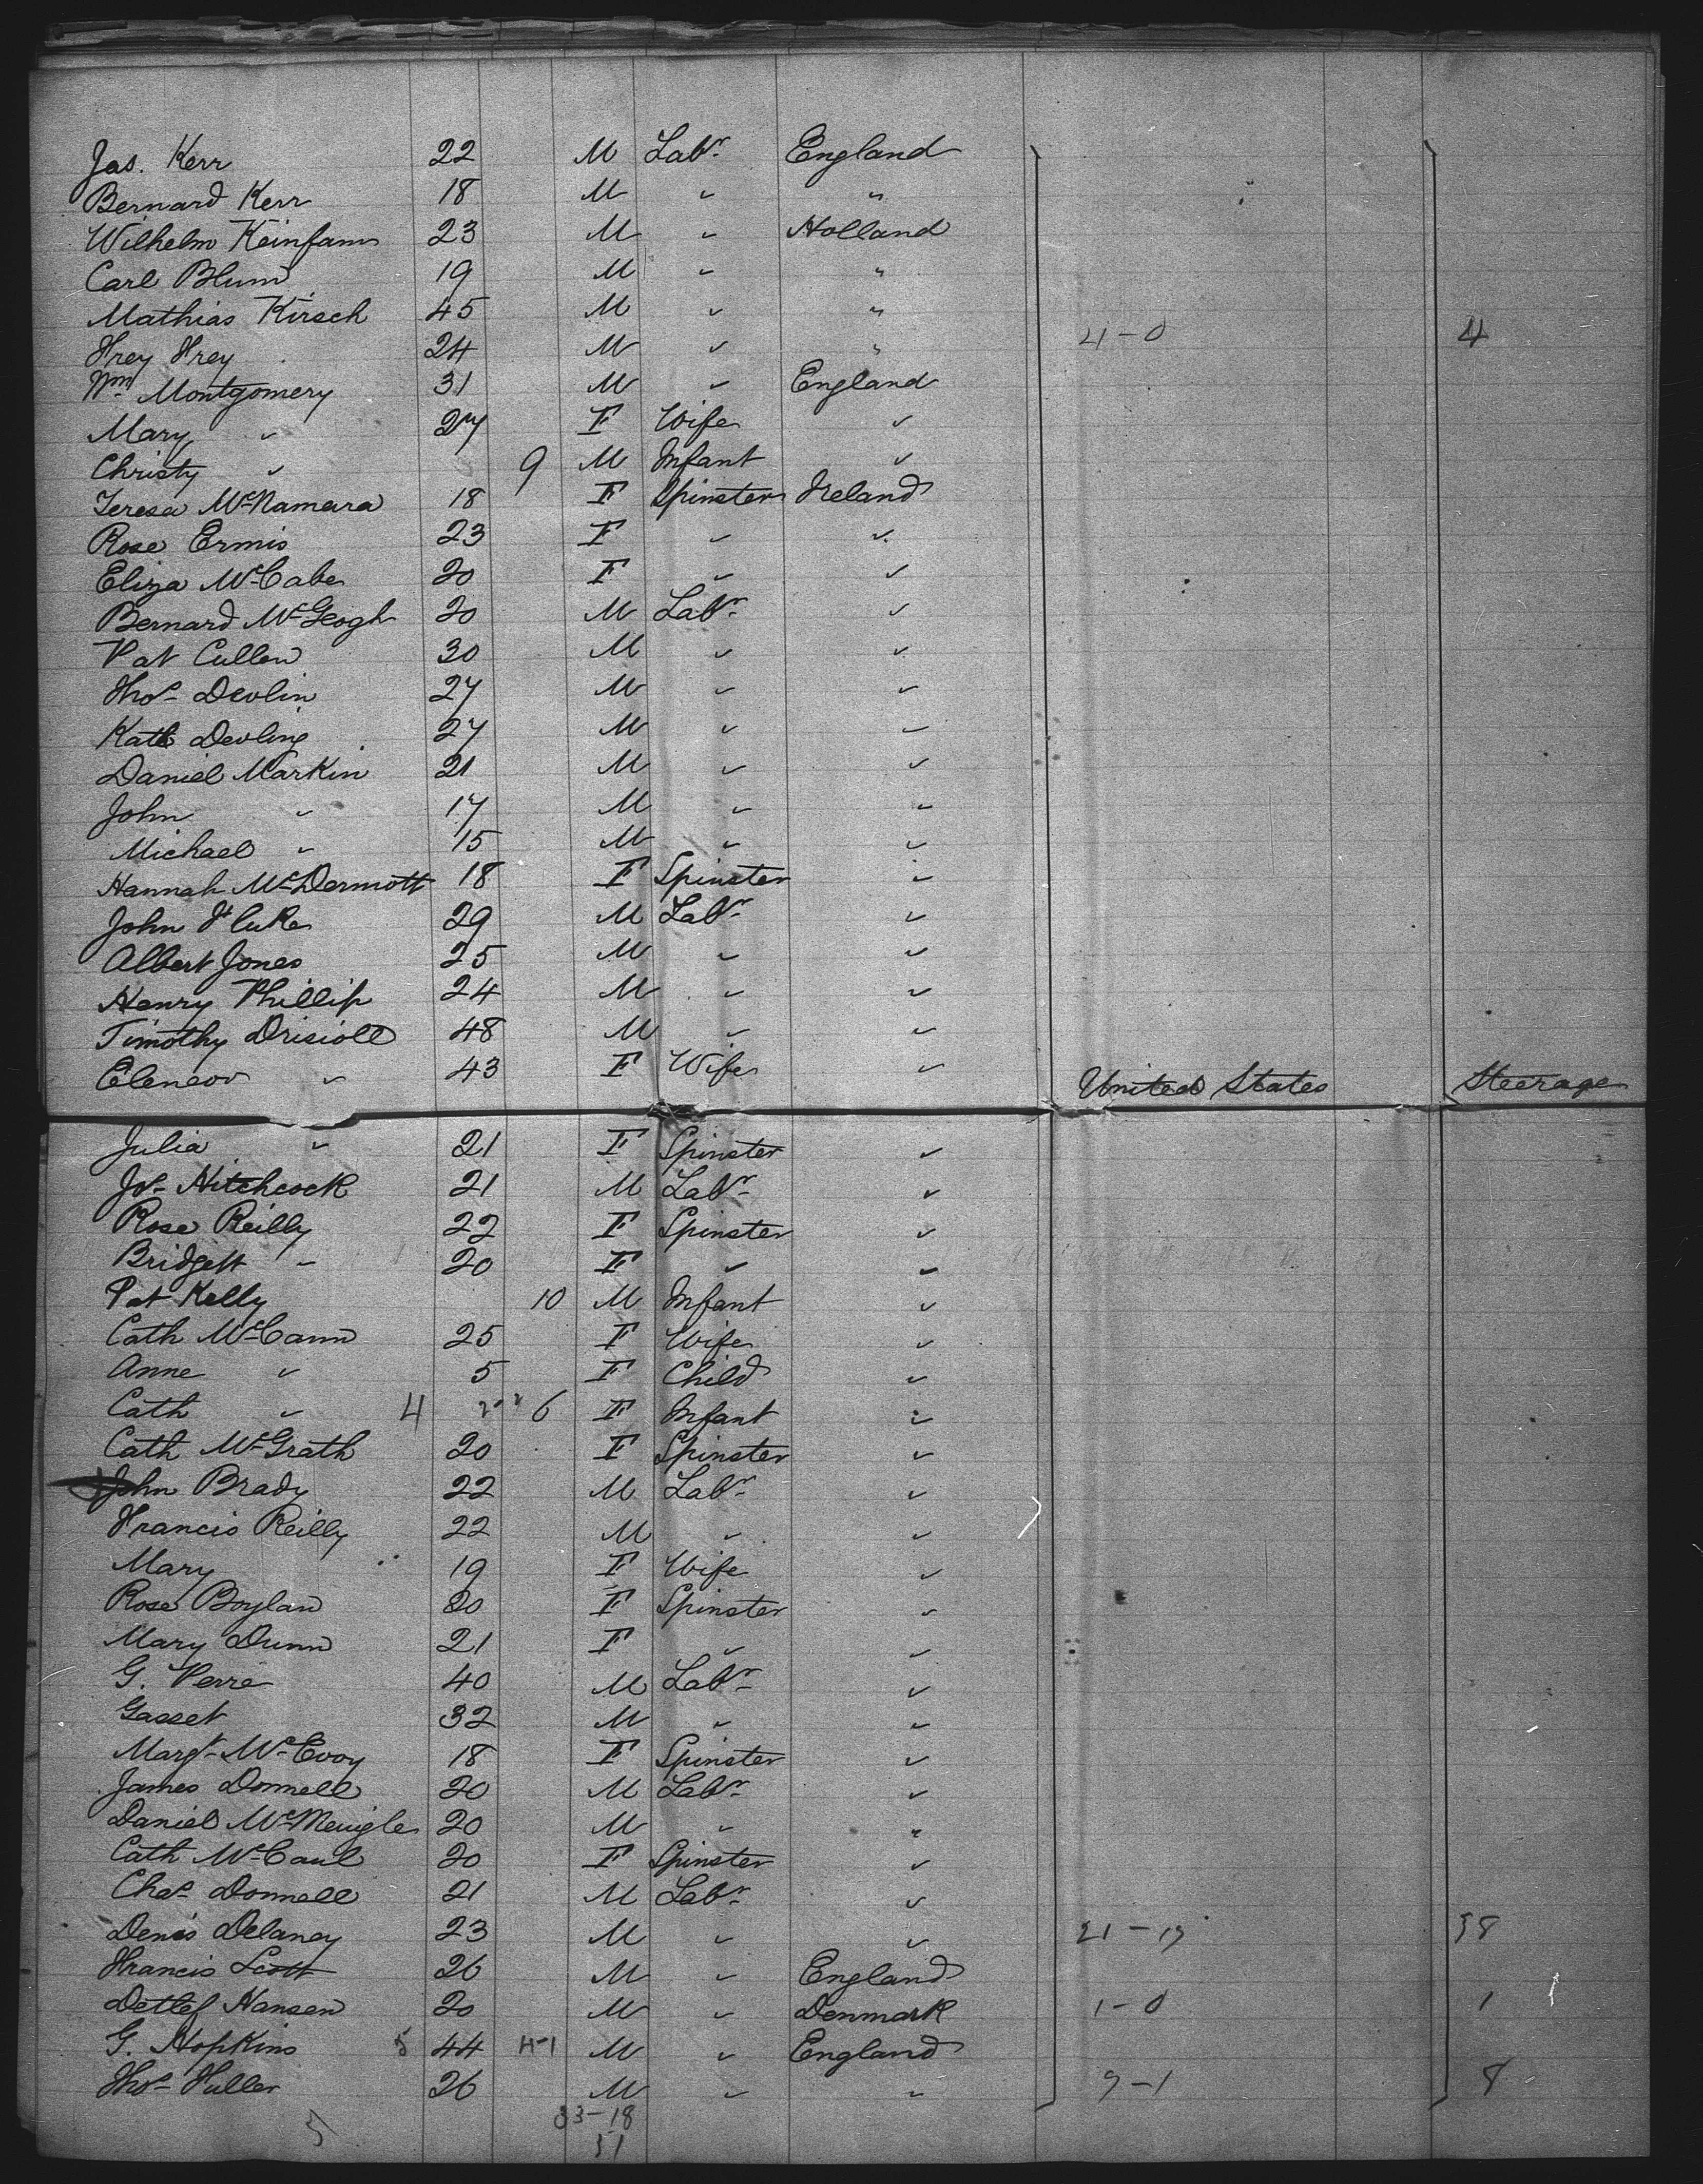 Jas. Kerr 22 M Labr England
Bernard Kerr 18 M " "
Wilhelm Keinfam 23 M " Holland
Carl Blum 19 M " "
Mathias Kirsch 45 M " "
Frey Frey 24 M " " 4-0 4
Wm Montgomery 31 M " England
Mary " 27 F Wife "
Christy " 9 M Infant "
Teresa McNamara 18 F Spinster Ireland
Rose Ermis 23 F " "
Eliza McCabe 20 F " "
Bernard McGeogh 20 M Labr "
Pat Cullen 30 M " "
Thos Devlin 27 M " "
Kate Devling 27 M " "
Daniel Markin 21 M " "
John " 17 M " "
Michael " 15 M " "
Hannah McDermott 18 F Spinster "
John Fluke 29 M Labr "
Albert Jones 25 M " "
Henry Phillip 24 M " "
Timothy Drisioll 48 M " "
Eleneor " 43 F Wife " United States Steerage
Julia " 21 F Spinster "
Jos Hitchcock 21 M Labr "
Rose Reilly 22 F Spinster "
Bridgett " 20 F " "
Pat Kelly 10 M Infant "
Cath McCann 25 F Wife "
Anne " 5 F Child "
Cath " 4 6 F Infant "
Cath McGrath 20 F Spinster "
John Brady 22 M Labr "
Francis Reilly 22 M " "
Mary " 19 F Wife "
Rose Boylan 20 F Spinster "
Mary Dunn 21 F " "
G. Perre 40 M Labr "
Gasset 32 M " "
Margt McEvoy 18 F Spinster "
James Donnell 20 M Labr "
Daniel McMenigle 20 M " "
Cath McCaul 20 F Spinster "
Chas Donnell 21 M Labr "
Denis Delaney 23 M " " 38
Francis Scott 26 M " England
Detlef Hansen 20 M " Denmark 1-0 1
G. Hopkins 5 44 4-1 M " England
Thos Fuller 26 M " " 7-1 8
33-18
51